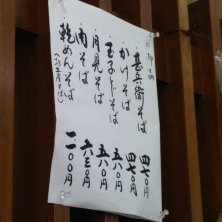 甚兵衛そば 四七〇円
かけそば 四七〇円
玉子とじそば 五八〇円
月見そば 五八〇円
肉そば 六三〇円
乾めんそば 二〇〇円